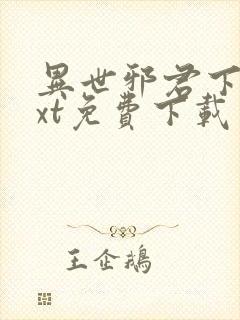 異世邪君下
xt免費下載
王企鵝